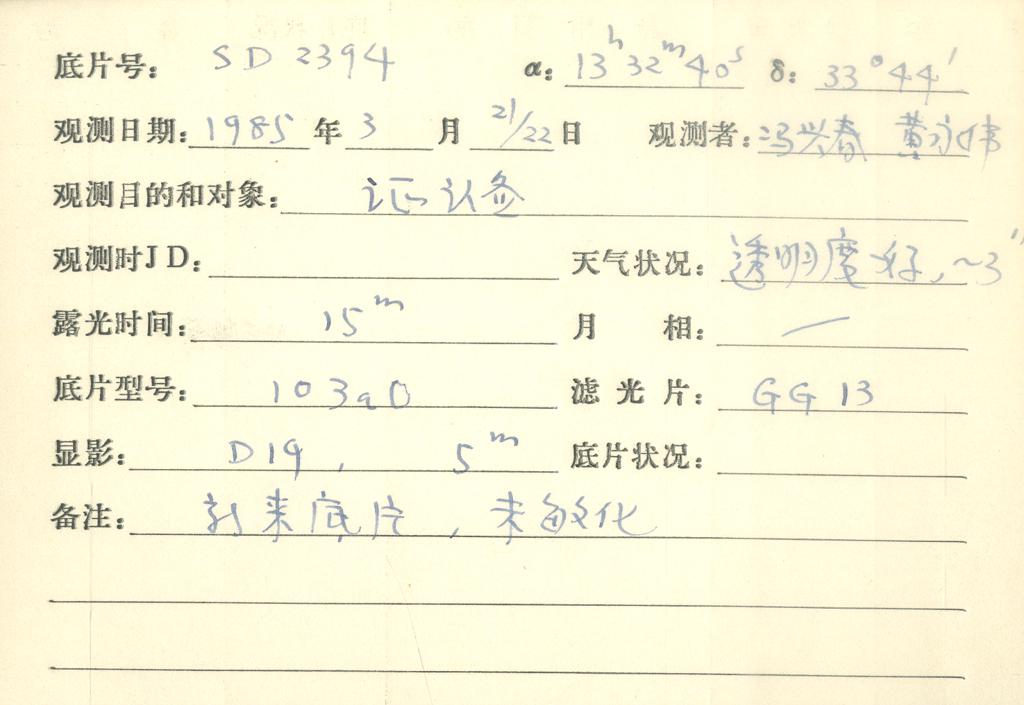 底片号: SD 2394 α: 13ʰ32ᵐ40ˢ δ: 33°44′
观测日期: 1985 年 3 月 21/22 日 观测者: 冯兴春 黄永伟
观测目的和对象: 证认
观测时JD: 天气状况: 透明度好, ~3″
露光时间: 15ᵐ 月 相: —
底片型号: 103aO 滤光片: GG 13
显影: D19, 5ᵐ 底片状况:
备注: 新来底片, 未敏化